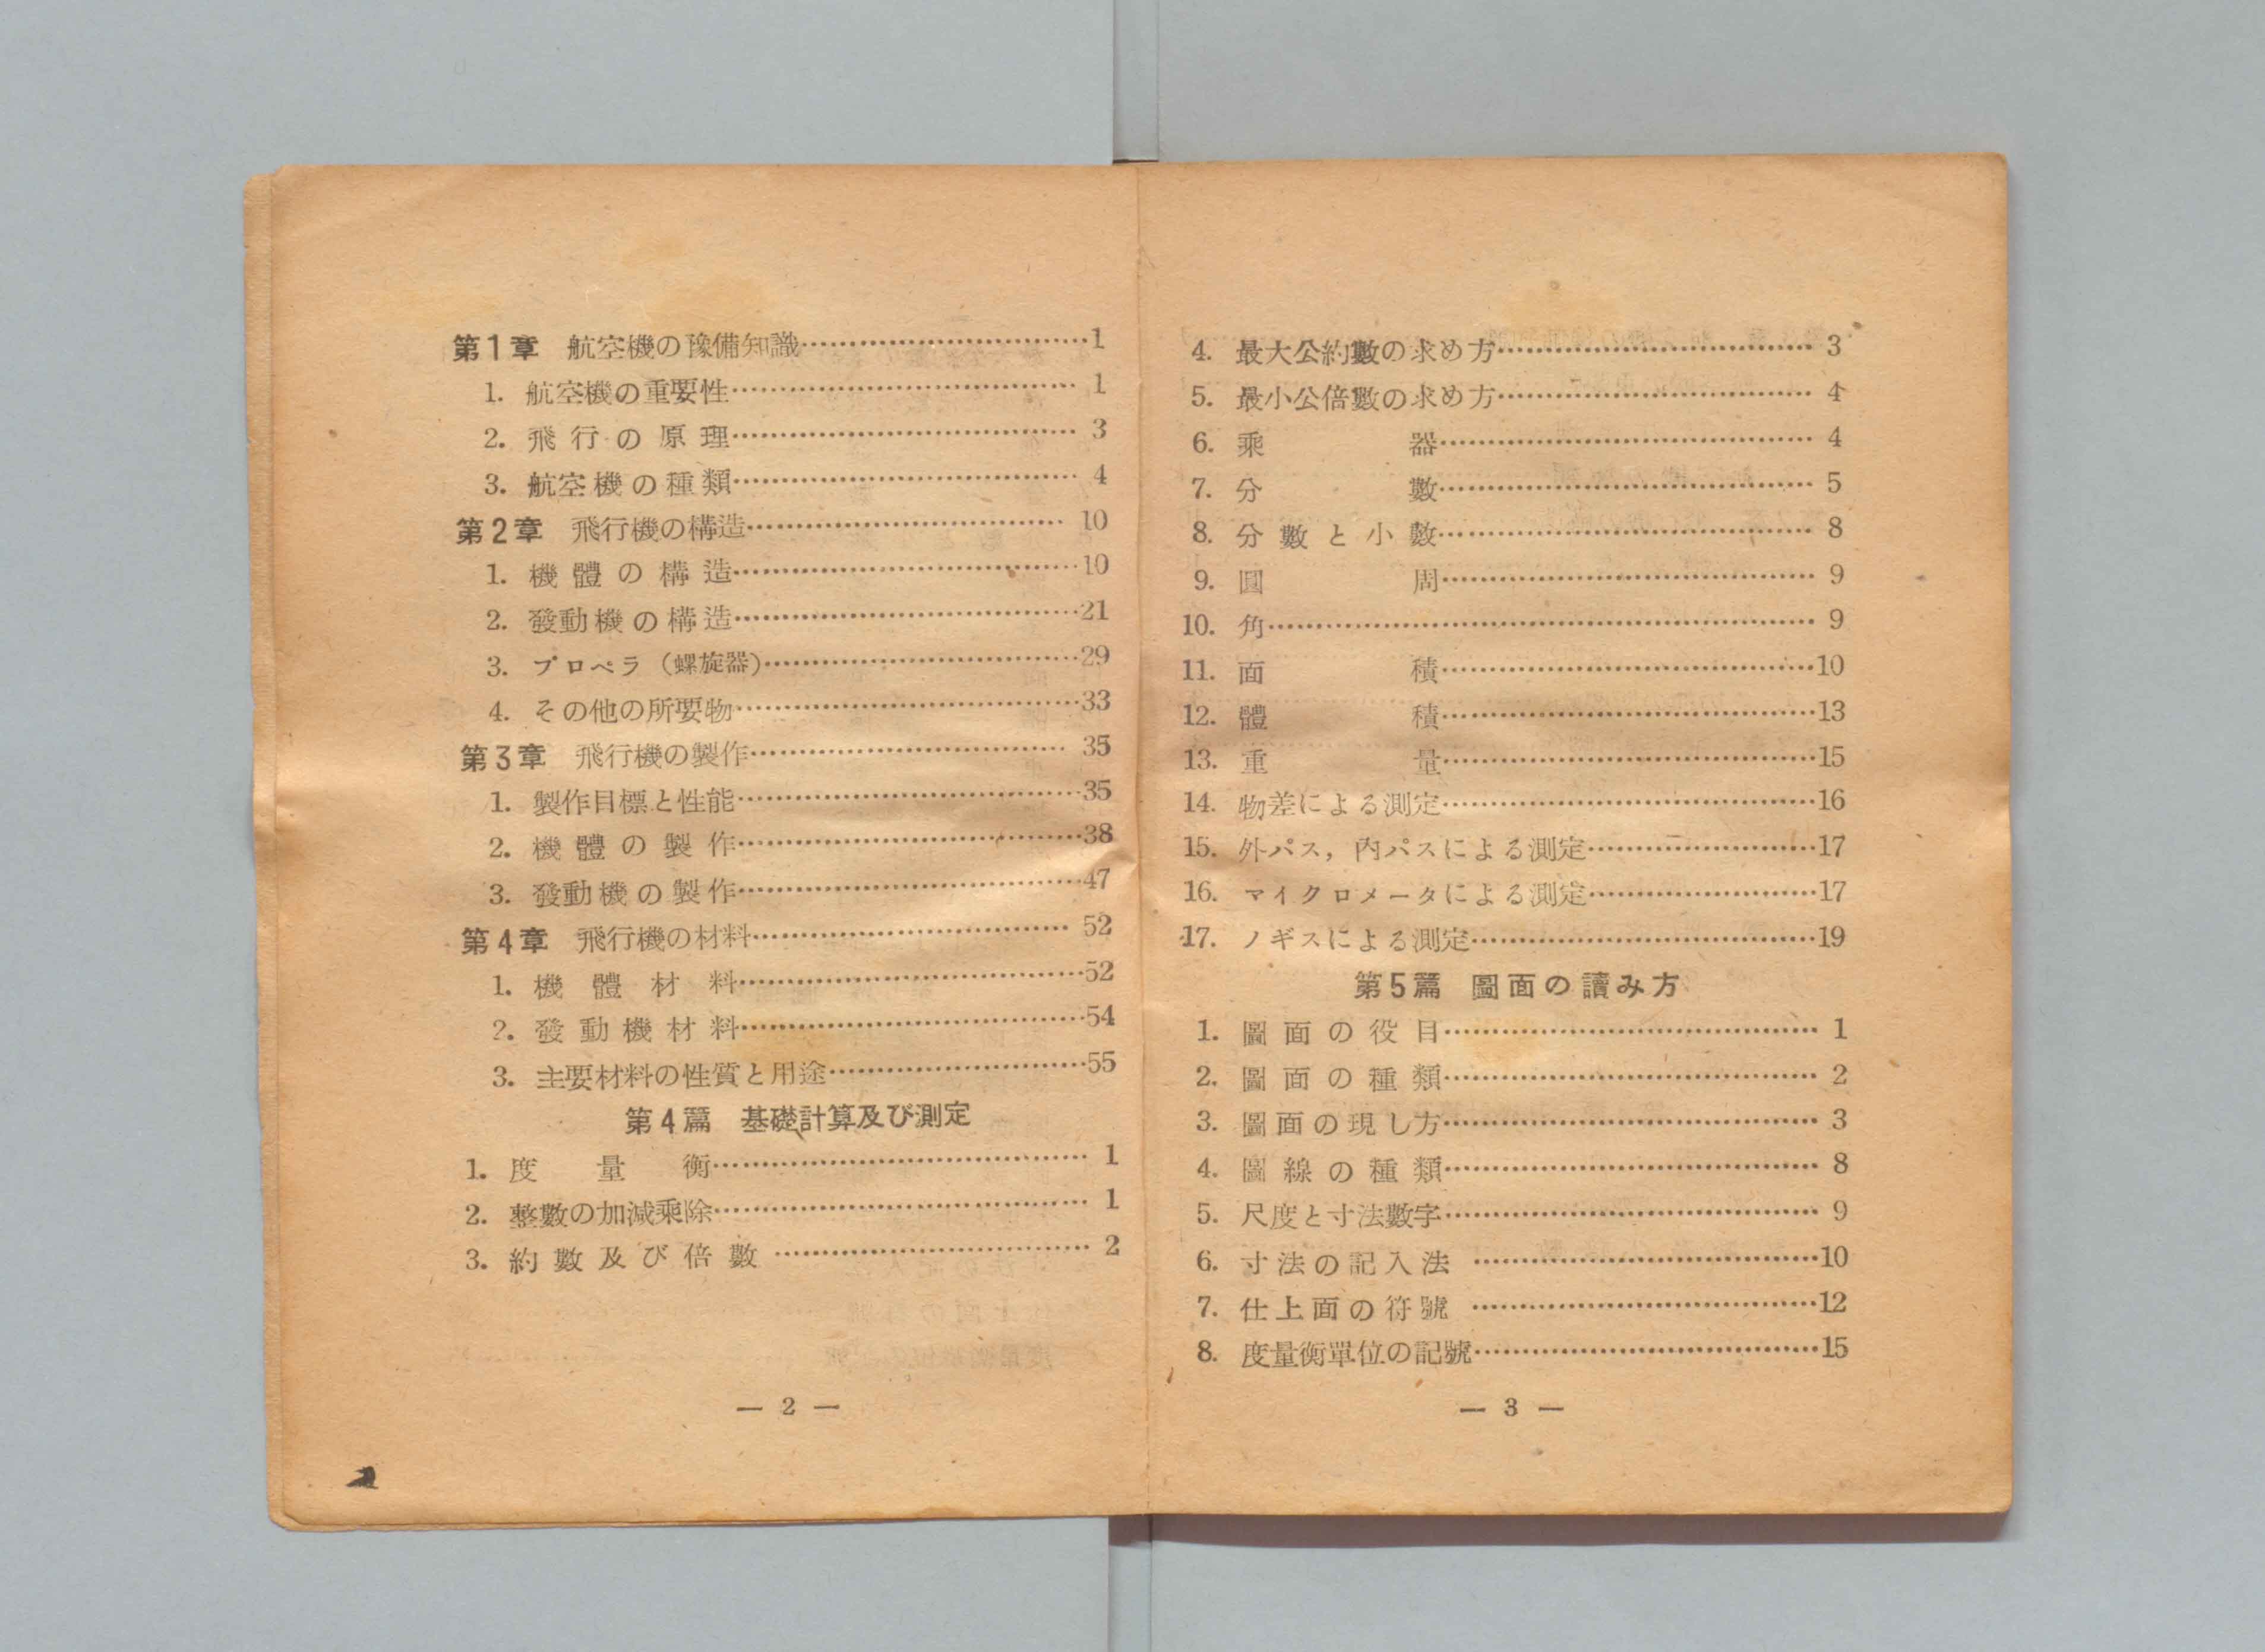 第1章 航空機の豫備知識……………………………1
1. 航空機の重要性…………………………………… 1
2. 飛行の原理…………………………………… 3
3. 航空機の種類…………………………………… 4
第2章 飛行機の構造………………………………… 10
1. 機體の構造……………………………………10
2. 發動機の構造……………………………………21
3. プロペラ（螺旋器）…………………………………29
4. その他の所要物……………………………………33
第3章 飛行機の製作………………………………… 35
1. 製作目標と性能……………………………………35
2. 機體の製作……………………………………38
3. 發動機の製作……………………………………47
第4章 飛行機の材料………………………………… 52
1. 機體材料……………………………………52
2. 發動機材料……………………………………54
3. 主要材料の性質と用途……………………………55
第4篇 基礎計算及び測定
1. 度量衡……………………………………… 1
2. 整數の加減乘除……………………………………… 1
3. 約數及び倍數 ………………………………… 2
— 2 —
4. 最大公約數の求め方………………………………… 3
5. 最小公倍數の求め方………………………………… 4
6. 乘器……………………………………… 4
7. 分數……………………………………… 5
8. 分數と小數……………………………………… 8
9. 圓周……………………………………… 9
10. 角………………………………………………………… 9
11. 面積………………………………………10
12. 體積………………………………………13
13. 重量………………………………………15
14. 物差による測定………………………………………16
15. 外パス，內パスによる測定………………………17
16. マイクロメータによる測定………………………17
17. ノギスによる測定……………………………………19
第5篇 圖面の讀み方
1. 圖面の役目……………………………………… 1
2. 圖面の種類……………………………………… 2
3. 圖面の現し方……………………………………… 3
4. 圖線の種類……………………………………… 8
5. 尺度と寸法數字……………………………………… 9
6. 寸法の記入法 ……………………………………10
7. 仕上面の符號 ……………………………………12
8. 度量衡單位の記號……………………………………15
— 3 —